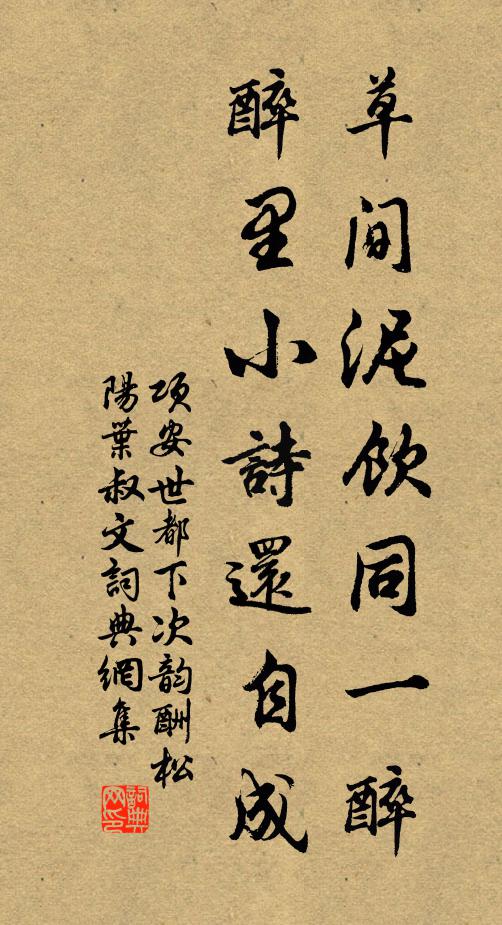 草间泥飲同一醉
醉里小詩還自成
项安世都下次韵酬松
陽葉叔文詞典網集
詞典網印